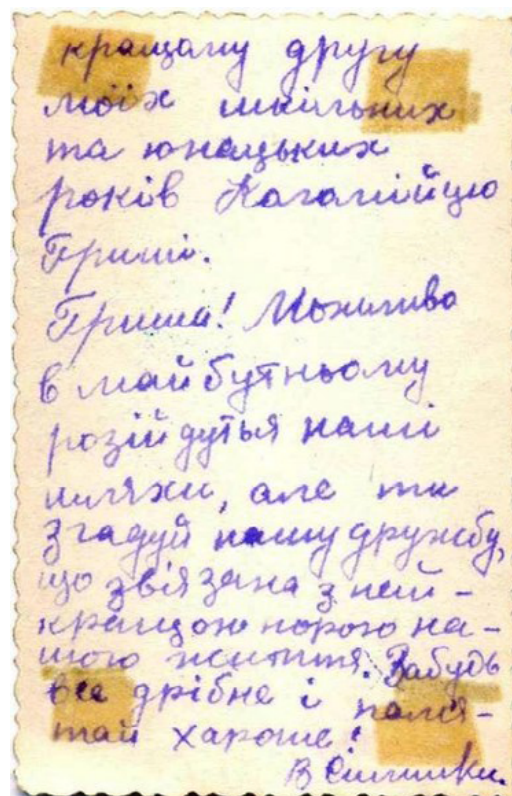 кращому другу
моїх шкільних
та юнацьких
років
Гриші.
Гриша! Можливо
в майбутньому
розійдуться наші
шляхи, але ти
згадуй нашу дружбу,
що звязана з най-
кращою порою на-
шого життя. Забудь
все дрібне і памя-
тай хароше!
В